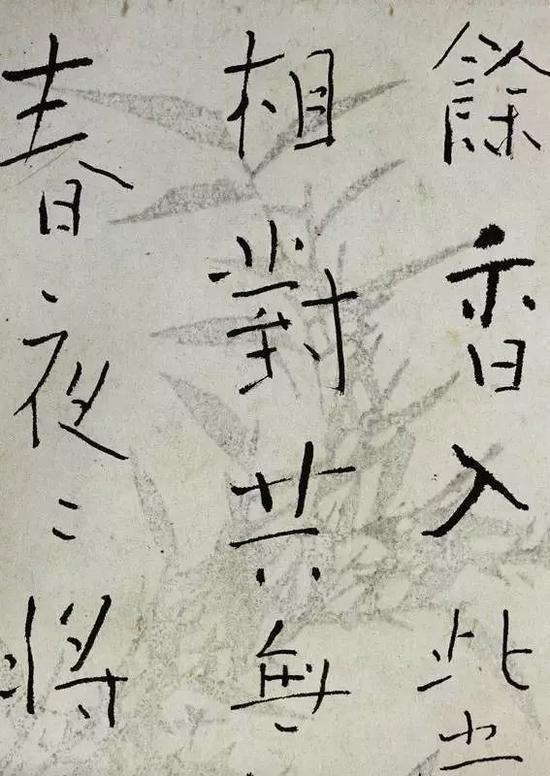 餘香入此
相對共無
春夜〻將